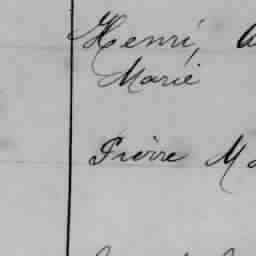 Henri,
Marie
Pierre